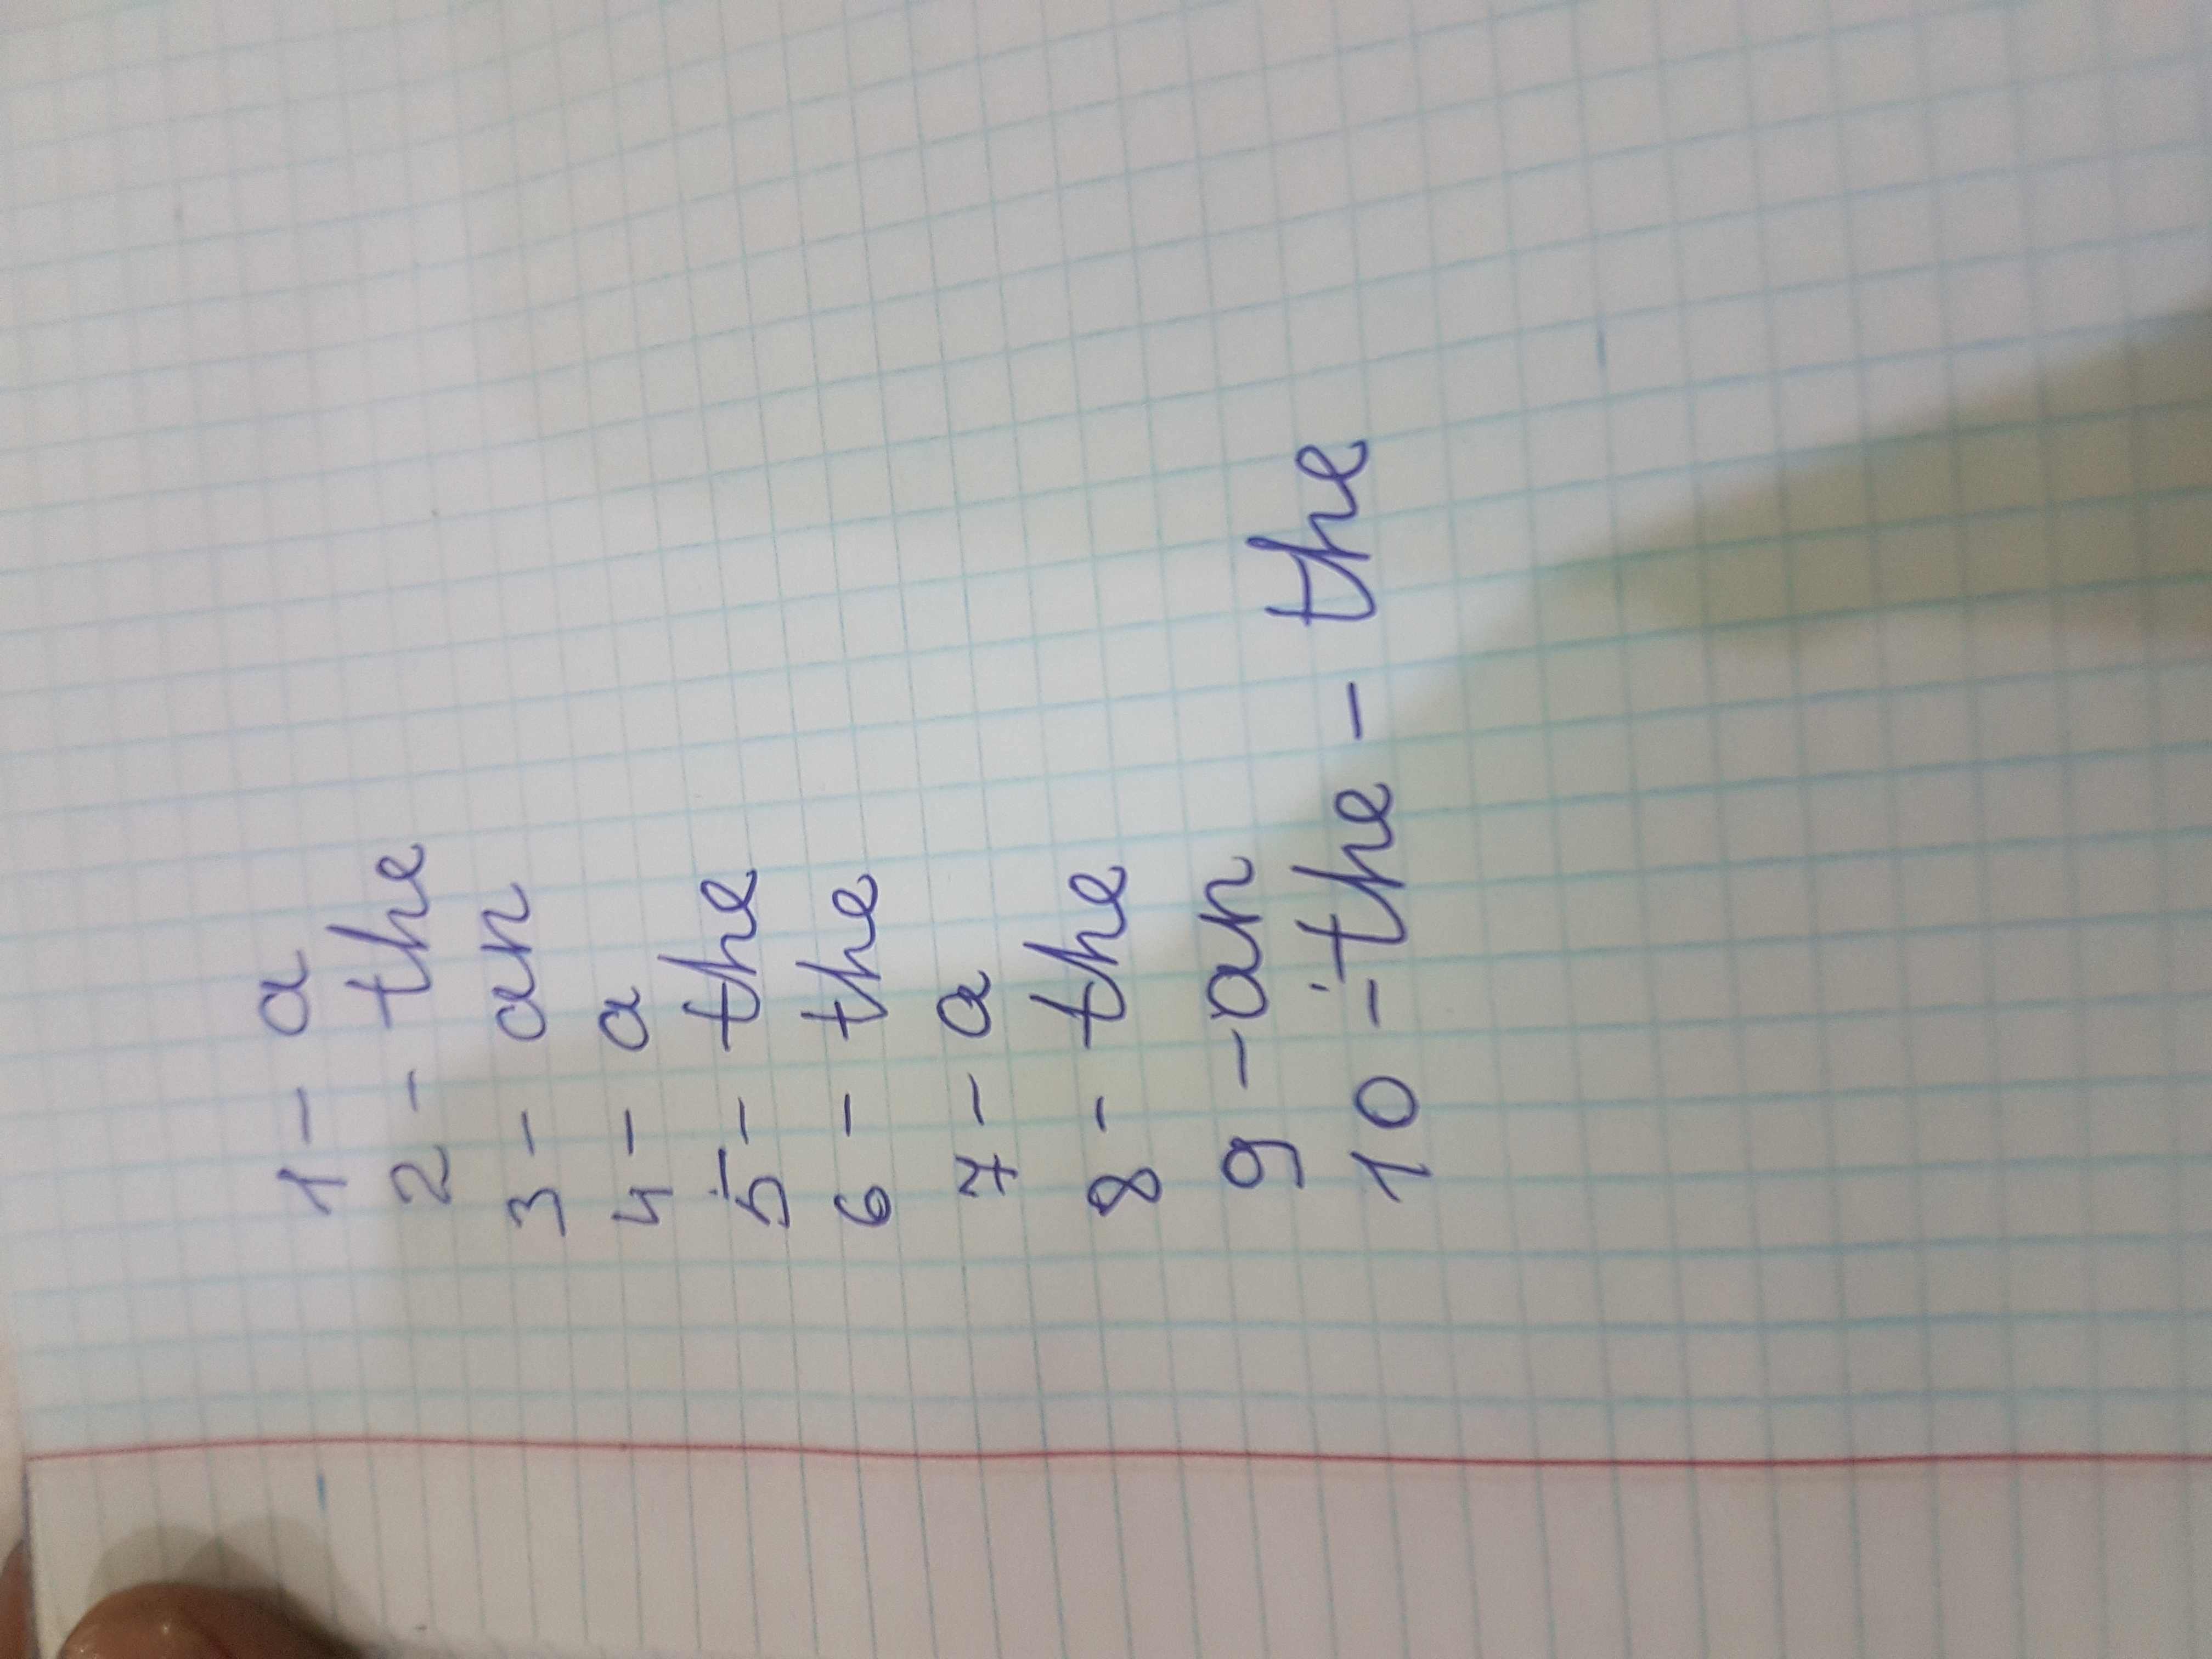 1 - a
2 - the
3 - an
4 - a
5 - the
6 - the
7 - a
8 - the
9 - an
10 - the - the